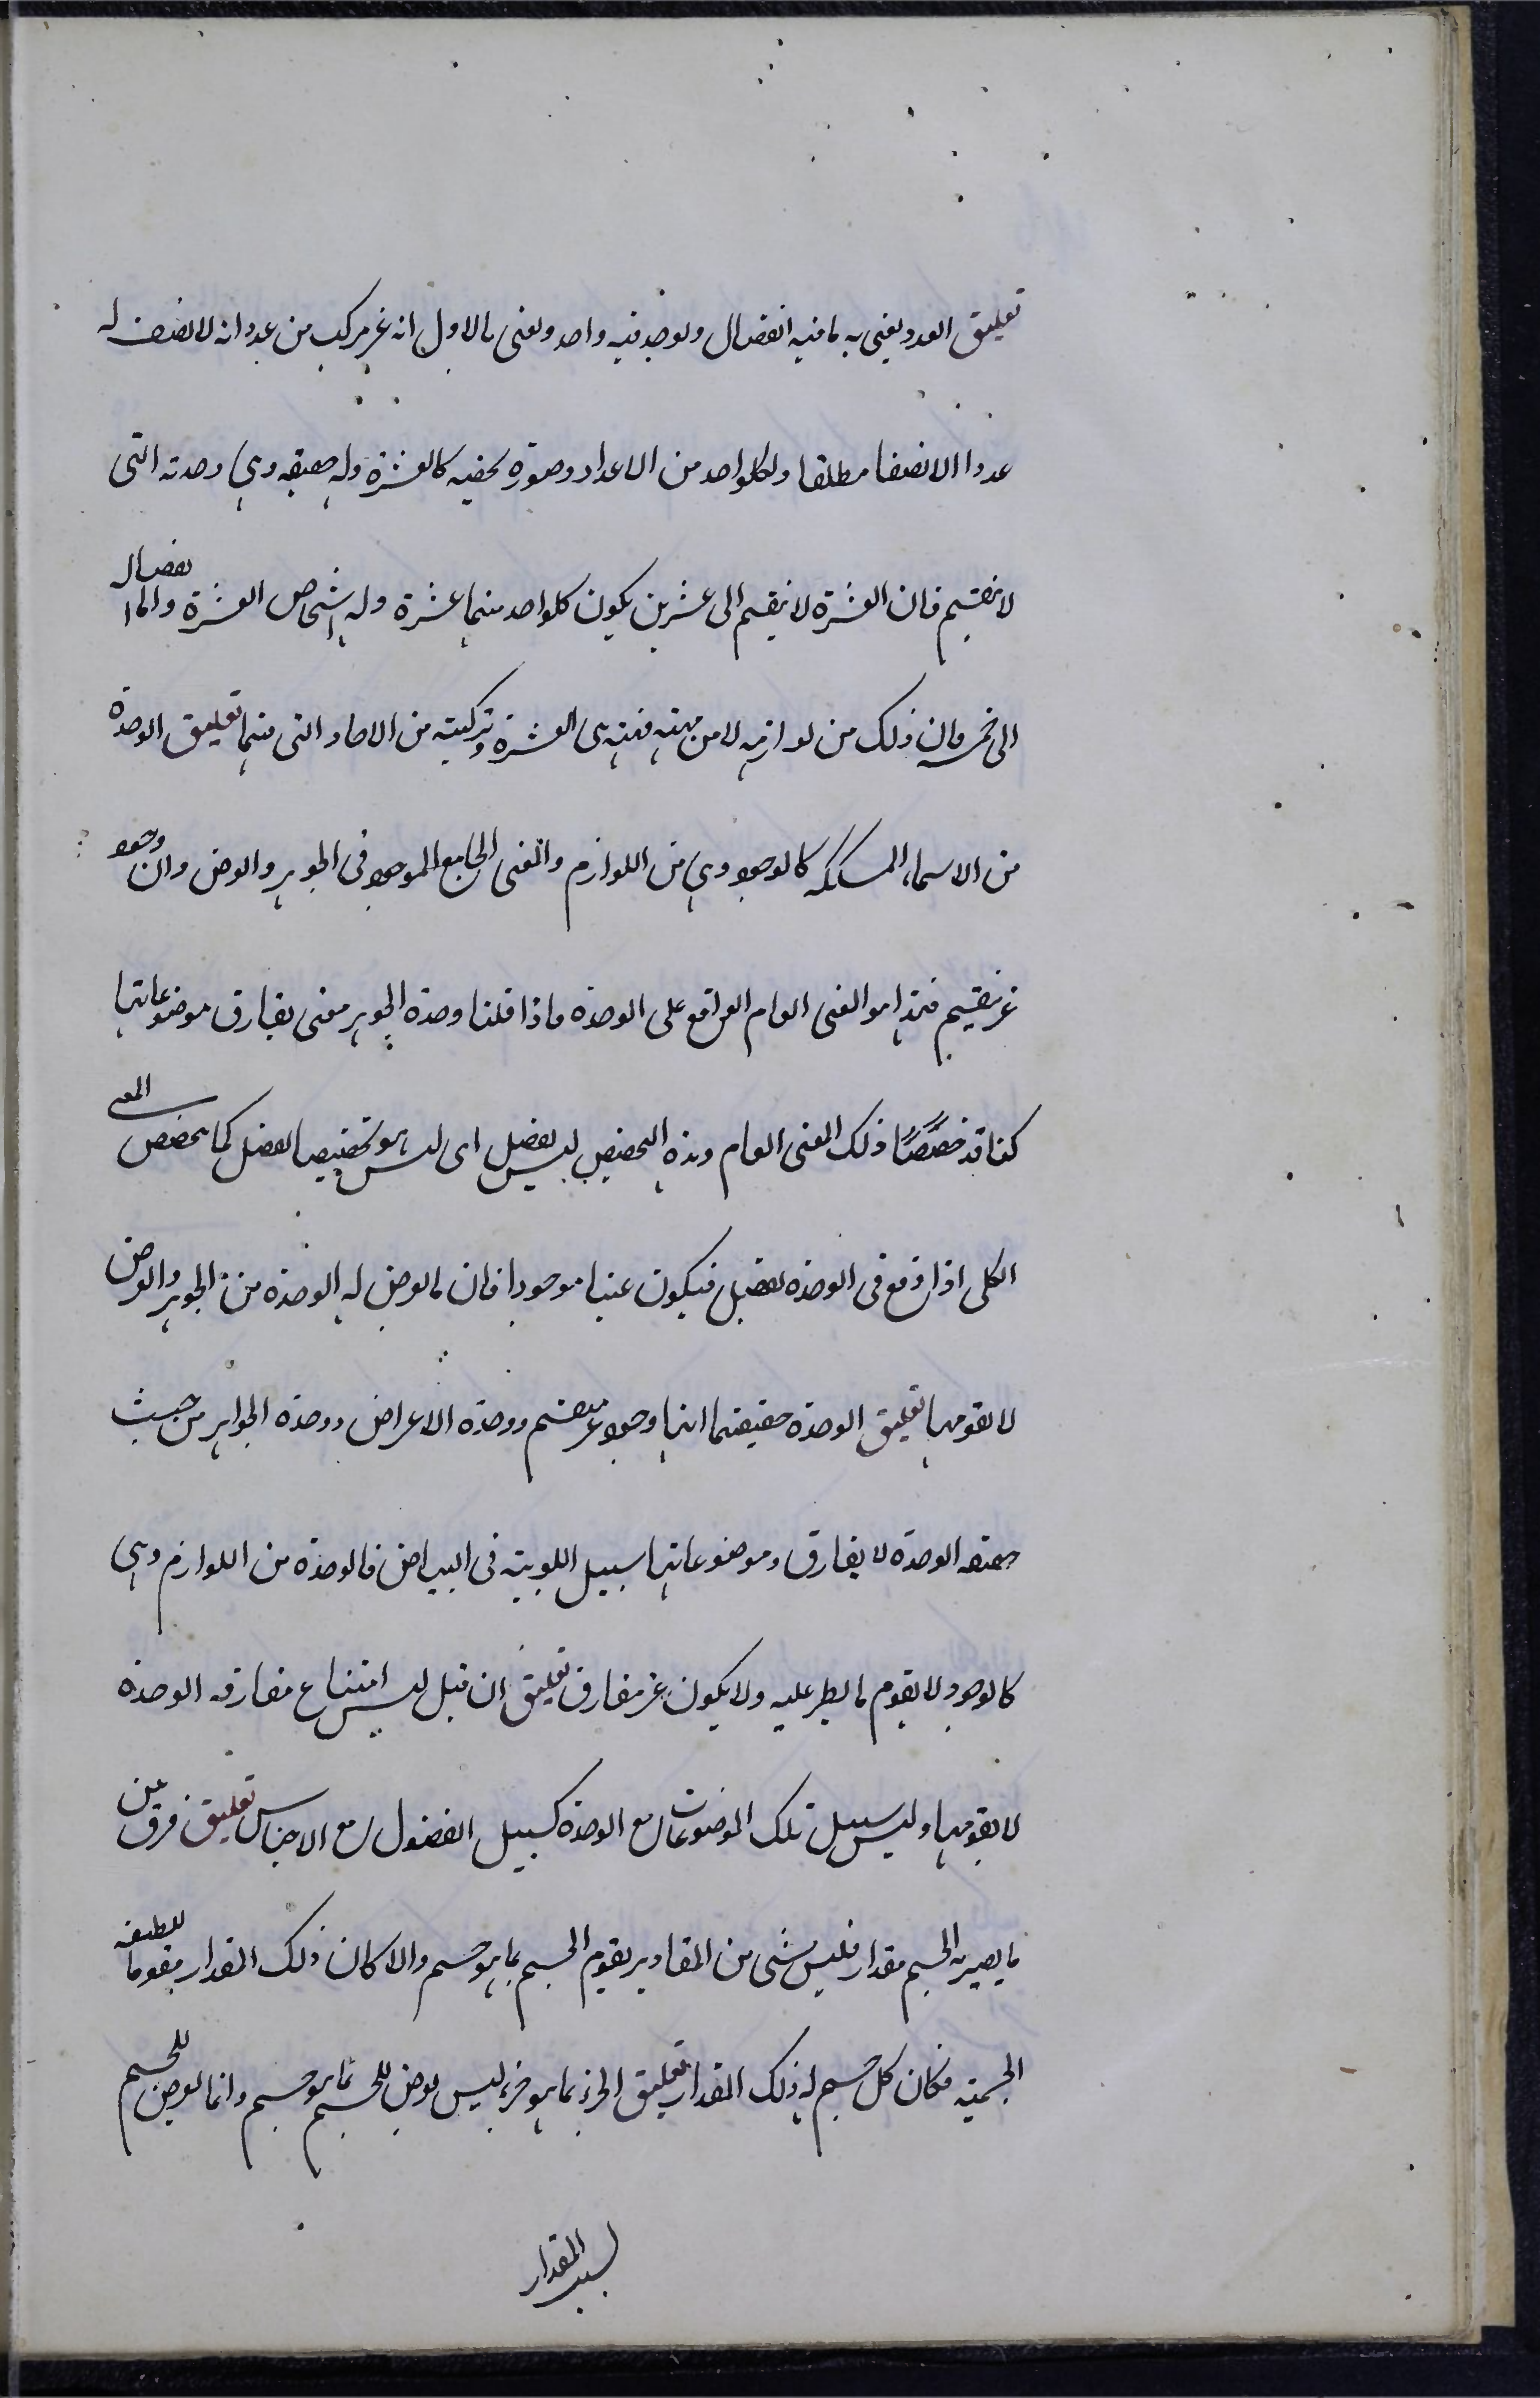 تعليق العدد يعنى به ما فيه انفصال ويوجد فيه واحد ويعنى بالاول انه غير مركب من عدد انه لا نصف له
عددا الا نصفا مطلقا ولكلواحد من الاعداد وصورة تخصه كالعشرة وله حقيقة وهى وحدته التى
لا ينقسم فان العشرة لا ينقسم الى عشرين يكون كلواحد منهما عشرة وله اشخاص العشرة والانفصال
الى خمسة فان ذلك من لوازمه لا من مهيته فمهيته هى العشرة وتركبت من الاحاد التى فيها تعليق الوحدة
من الاسماء المشككة كالوجود وهى من اللوازم والمعنى الجامع الموجود فى الجوهر والعرض وانه وجود
غير منقسم فهذا هو المعنى العام الواقع على الوحدة فاذا قلنا وحدة الجوهر معنى يفارق موضوعاتها
كنا قد خصصنا ذلك المعنى العام وهذه التخصيص ليس بفصل اى ليس هو تخصيصا بفصل كما يخصص المعنى
الكلى اذا وقع فى الوحدة بفصل فيكون عينا موجودا فان ما يعرض له الوحدة من الجوهر والعرض
لا يقومها تعليق الوحدة حقيقتها انها وجود غير منقسم ووحدة الاعراض ووحدة الجواهر من حيث
حقيقة الوحدة لا يفارق وموضوعاتها سبيل اللونية فى البياض فالوحدة من اللوازم وهى
كالوجود لا يقوم ما يطرء عليه ولا يكون غير مفارق تعليق ان قيل ليس امتناع مفارقة الوحدة
لا يقومها وليس سبيل تلك الموضوعات مع الوحدة كسبيل الفصول مع الاجناس تعليق فرق بين
ما يصير به الجسم مقدار فليس شى من المقادير يقوم الجسم بما هو جسم والا كان ذلك المقدار مقوما لطبيعة
الجسمية فكان كل جسم له ذلك المقدار تعليق الجزء بما هو جزء ليس يعرض للجسم بما هو جسم وانما يعرض للجسم
بسبب المقدار